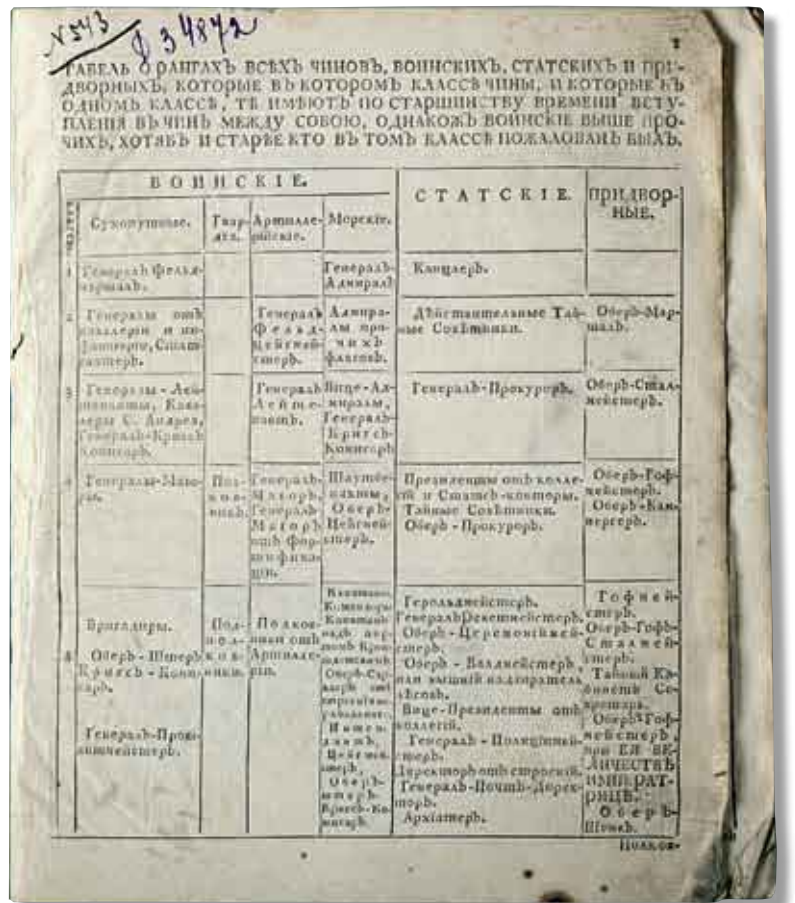 № 543
34872
ТАБЕЛЬ О РАНГАХЪ ВСѢХЪ ЧИНОВЪ, ВОИНСКИХЪ, СТАТСКИХЪ И ПРИ-
ДВОРНЫХЪ, КОТОРЫЕ ВЪ КОТОРОМЪ КЛАССѢ ЧИНЫ, И КОТОРЫЕ ВЪ
ОДНОМЪ КЛАССѢ, ТѢ ИМѢЮТЪ ПО СТАРШИНСТВУ ВРЕМЕНИ ВСТУ-
ПЛЕНІЯ ВЪ ЧИНЪ МЕЖДУ СОБОЮ, ОДНАКОЖЪ ВОИНСКІЕ ВЫШЕ ПРО-
ЧИХЪ, ХОТЯБЪ И СТАРѢЕ КТО ВЪ ТОМЪ КЛАССѢ ПОЖАЛОВАНЪ БЫЛЪ.
ВОИНСКІЕ.
СТАТСКІЕ.
ПРИДВОР-
НЫЕ.
Сухопутные.
Гвар-
Артилле-
рійскіе.
Морскіе.
1
Генералъ фельд-
маршалъ.
Генералъ-
Адмиралъ
Канцлеръ.
2
Генералы отъ
кавалеріи и ин-
фантеріи,
Генералъ
Фельд-
Адмира-
лы про-
чихъ
флаговъ.
Дѣйствительные Тай-
ные Совѣтники.
Оберъ-Мар-
шалъ.
3
Генералы-Лей-
тенанты, Кава-
леры С. Андрея,
Генералъ-Кригсъ
Генералъ
Лейте-
нантъ.
Вице-Ад-
миралы,
Генералъ-
Кригсъ-
Генералъ-Прокуроръ.
Оберъ-Стал-
мейстеръ.
4
Генералы-Маіо-
ры.
Пол-
ков-
никъ.
Генералъ-
Маіоръ,
Генералъ-
Маіоръ
отъ фор-
тифика-
ціи.
Шаутбе-
нахты,
Оберъ-
Президенты отъ колле-
гій и Статсъ-конторы.
Тайные Совѣтники.
Оберъ-Прокуроръ.
Оберъ-Гоф-
мейстеръ.
Оберъ-Кам-
мергеръ.
5
Бригадиры.
Генералъ-
Под-
пол-
ков-
ники.
Полков-
ники отъ
Артилле-
ріи.
Герольдмейстеръ.
Генералъ Рекетмейстеръ.
Оберъ-Церемоніймей-
стеръ.
Оберъ-Валдмейстеръ,
или вышній надзиратель
лѣсовъ.
Вице-Президенты отъ
коллегій.
Генералъ-Полиціймей-
стеръ.
Директоръ отъ строеній.
Генералъ-Почтъ-Дирек-
торъ.
Архіатеръ.
Гофмей-
стеръ.
Оберъ-Гофъ-
Сталмей-
стеръ.
Тайный Ка-
бинетъ Се-
кретарь.
Оберъ-Гоф-
мейстеръ,
при ЕЯ ВЕ-
ЛИЧЕСТВѢ
ИМПЕРАТ-
РИЦѢ.
Оберъ-
Шенкъ.
Полков-